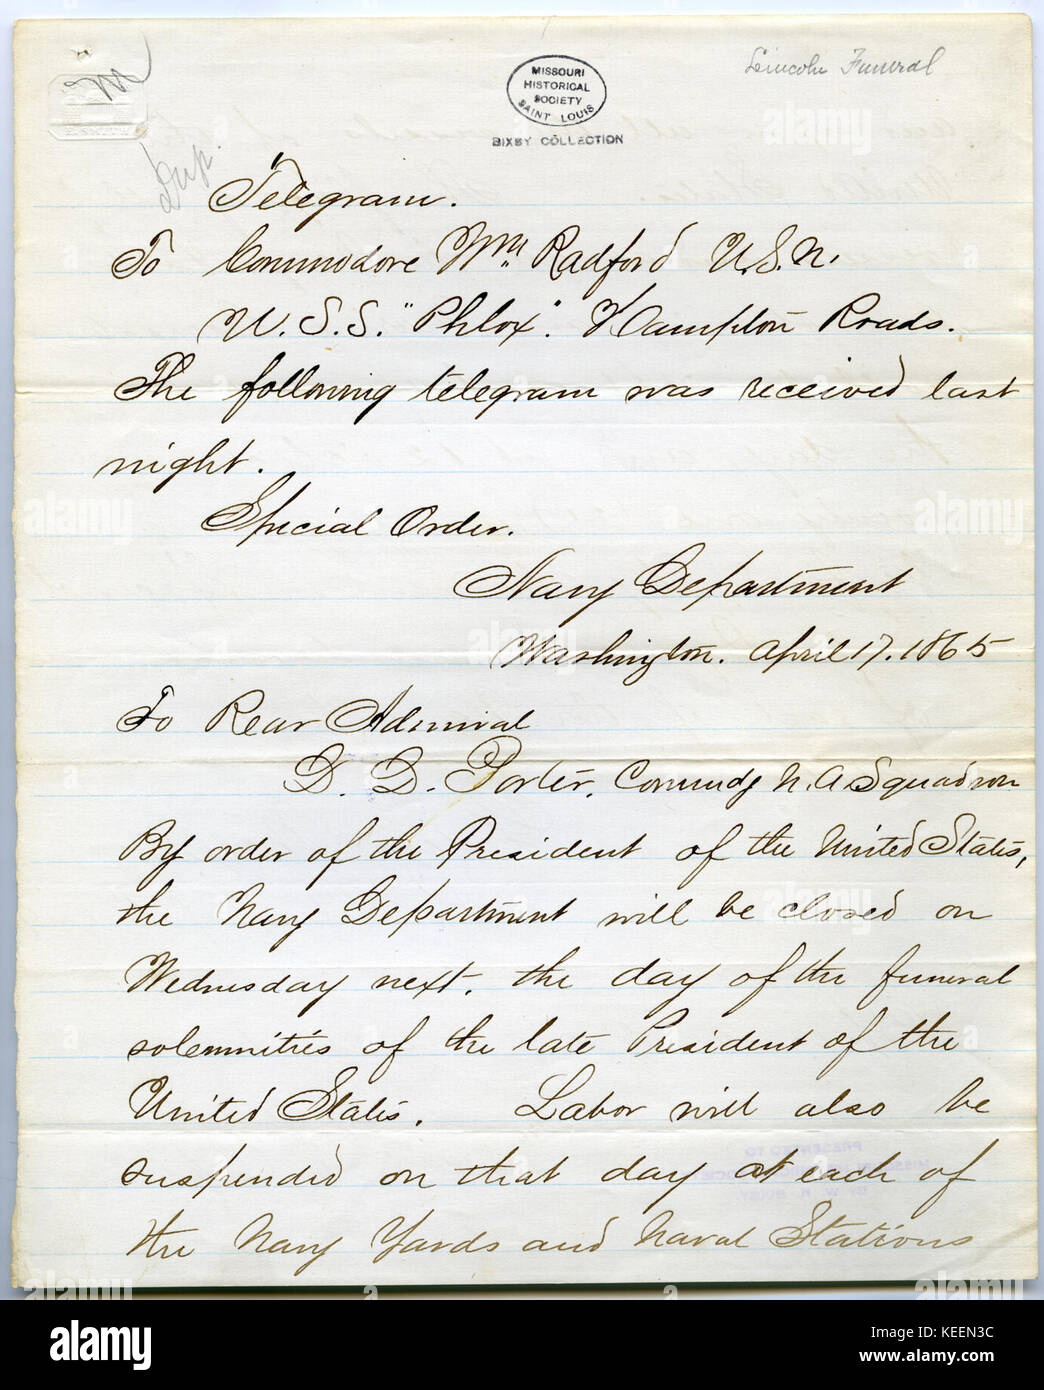 Lincoln Funeral
MISSOURI
HISTORICAL
SOCIETY
SAINT LOUIS
BIXBY COLLECTION
Dup.
Telegram.
To Commodore Wm. Radford U.S.N.
U.S.S. "Phlox". Hampton Roads.
The following telegram was received last
night.
Special Order.
Navy Department
Washington. April 17. 1865
To Rear Admiral
D. D. Porter, Commdg N.A. Squadron
By order of the President of the United States,
the Navy Department will be closed on
Wednesday next, the day of the funeral
solemnities of the late President of the
United States. Labor will also be
suspended on that day at each of
the Navy Yards and Naval Stations
alamy
Image ID: KEEN3C
www.alamy.com